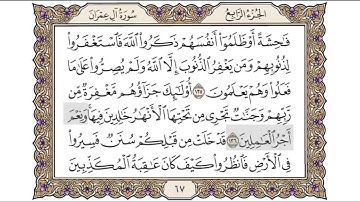 الجُزْءُ الرَّابِعُ سُورَةُ آلِ عِمْرَانَ
فَٰحِشَةً أَوْ ظَلَمُوٓا۟ أَنفُسَهُمْ ذَكَرُوا۟ ٱللَّهَ فَٱسْتَغْفَرُوا۟
لِذُنُوبِهِمْ وَمَن يَغْفِرُ ٱلذُّنُوبَ إِلَّا ٱللَّهُ وَلَمْ يُصِرُّوا۟ عَلَىٰ مَا
فَعَلُوا۟ وَهُمْ يَعْلَمُونَ ١٣٥ أُو۟لَٰٓئِكَ جَزَآؤُهُم مَّغْفِرَةٌ مِّن
رَّبِّهِمْ وَجَنَّٰتٌ تَجْرِى مِن تَحْتِهَا ٱلْأَنْهَٰرُ خَٰلِدِينَ فِيهَا وَنِعْمَ
أَجْرُ ٱلْعَٰمِلِينَ ١٣٦ قَدْ خَلَتْ مِن قَبْلِكُمْ سُنَنٌ فَسِيرُوا۟
فِى ٱلْأَرْضِ فَٱنظُرُوا۟ كَيْفَ كَانَ عَٰقِبَةُ ٱلْمُكَذِّبِينَ
٦٧